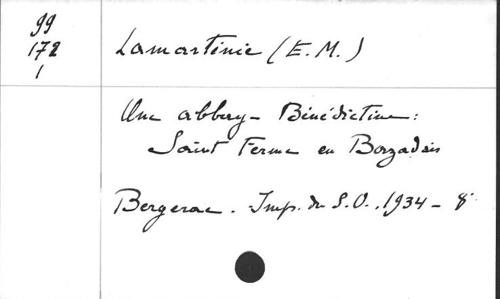 99
172
1
Lamartinie (E. M.)
Une abbaye Bénédictine :
Saint Ferme en Bazadais
Bergerac. Imp. du S.O., 1934 - 8°